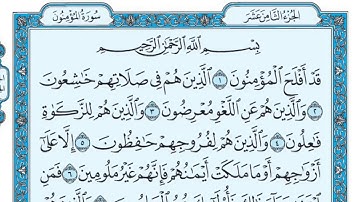 الجزء الثامن عشر
سورة المؤمنون
بِسْمِ اللَّهِ الرَّحْمَٰنِ الرَّحِيمِ
قَدْ أَفْلَحَ الْمُؤْمِنُونَ ١ الَّذِينَ هُمْ فِي صَلَاتِهِمْ خَاشِعُونَ
٢ وَالَّذِينَ هُمْ عَنِ اللَّغْوِ مُعْرِضُونَ ٣ وَالَّذِينَ هُمْ لِلزَّكَاةِ
فَاعِلُونَ ٤ وَالَّذِينَ هُمْ لِفُرُوجِهِمْ حَافِظُونَ ٥ إِلَّا عَلَىٰ
أَزْوَاجِهِمْ أَوْ مَا مَلَكَتْ أَيْمَانُهُمْ فَإِنَّهُمْ غَيْرُ مَلُومِينَ ٦ فَمَنِ